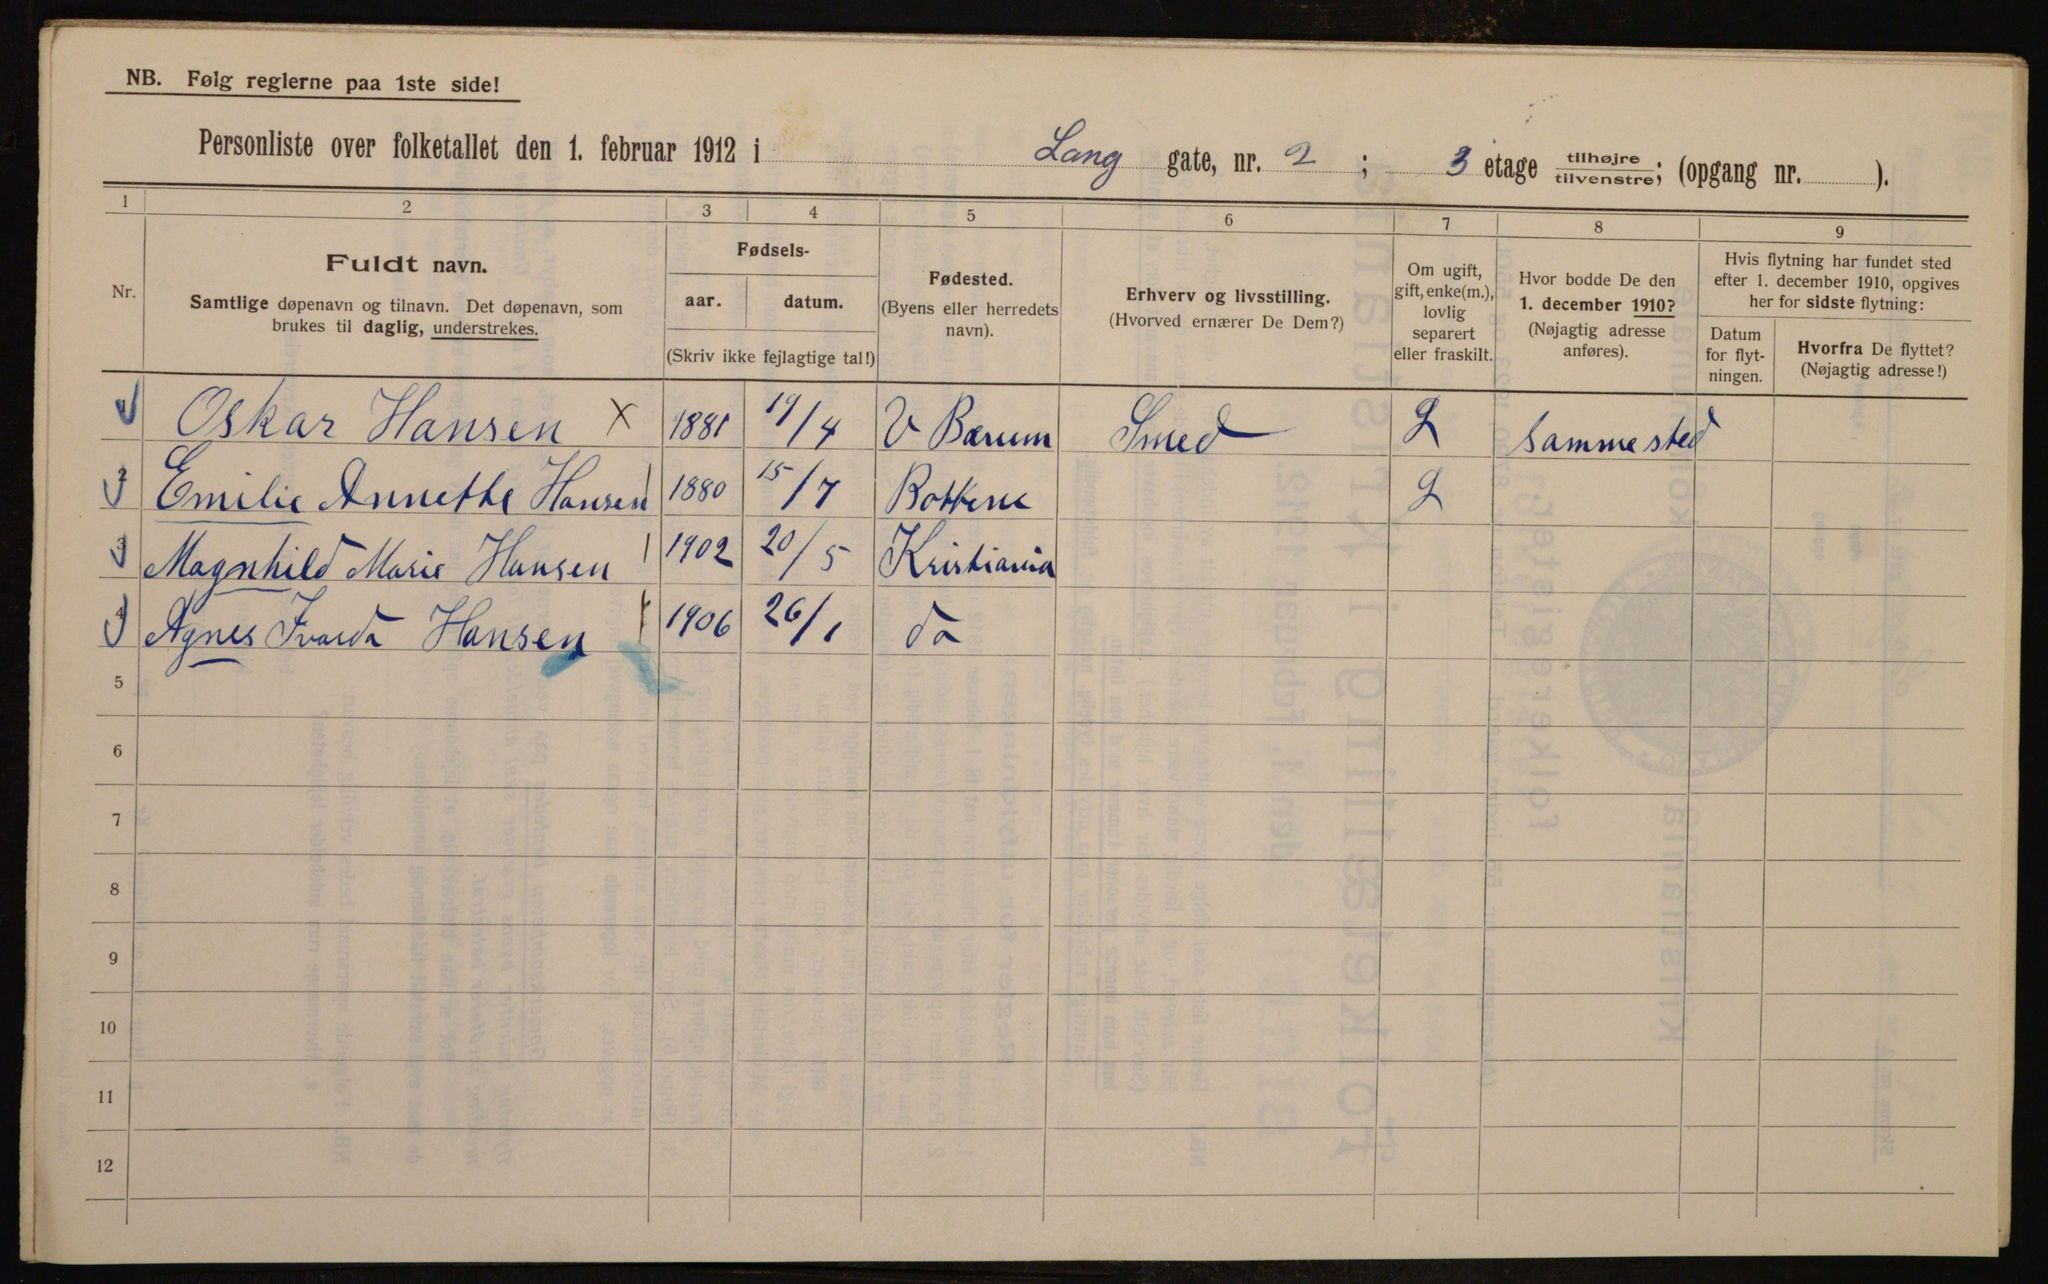 NB. Følg reglerne paa 1ste side!
Personliste over folketallet den 1. februar 1912 i Lang gate, nr. 2 ; 3 etage tilhøjre tilvenstre; (opgang nr. ).
1 2 3 4 5 6 7 8 9
Nr.
Fuldt navn.
Samtlige døpenavn og tilnavn. Det døpenavn, som
brukes til daglig, understrekes.
Fødsels-
aar. datum.
(Skriv ikke fejlagtige tal!)
Fødested.
(Byens eller herredets
navn).
Erhverv og livsstilling.
(Hvorved ernærer De Dem?)
Om ugift,
gift, enke(m.),
lovlig
separert
eller fraskilt.
Hvor bodde De den
1. december 1910?
(Nøjagtig adresse
anføres).
Hvis flytning har fundet sted
efter 1. december 1910, opgives
her for sidste flytning:
Datum
for flyt-
ningen.
Hvorfra De flyttet?
(Nøjagtig adresse!)
1 Oskar Hansen X 1881 19/4 V Bærum Smed sammested
2 Emilie Annethe Hansen 1880 15/7
3 Magnhild Marie Hansen 1902 20/5 Kristiania
4 Agnes Hansen 1906 26/1 do
5
6
7
8
9
10
11
12